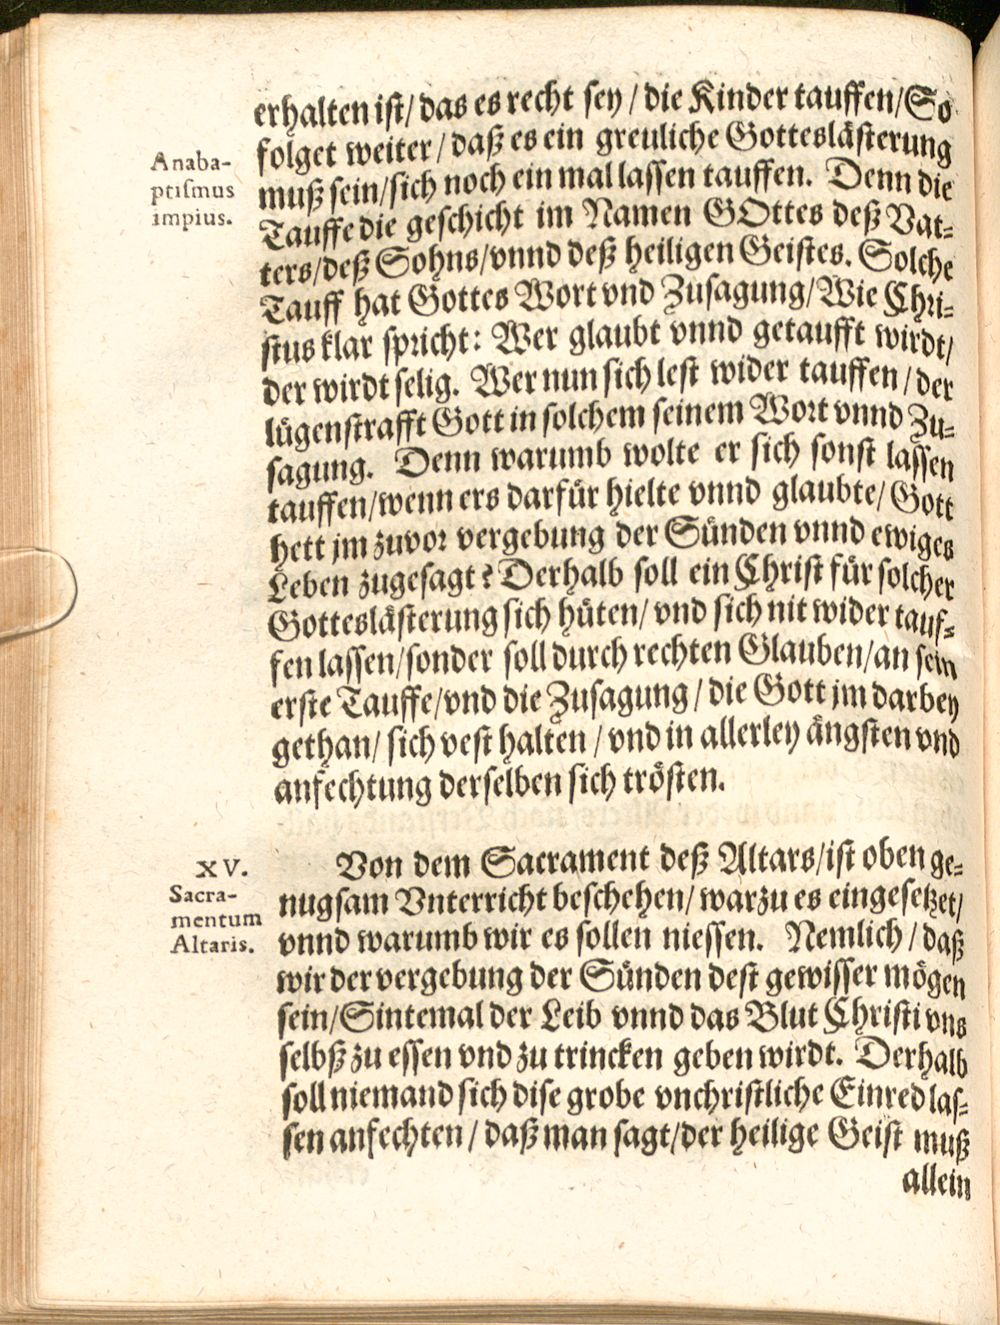 erhalten ist/ das es recht sey / die Kinder tauffen/So
folget weiter / daß es ein greuliche Gotteslästerung
Anaba-
ptismus
impius.
muß sein/sich noch ein mal lassen tauffen. Denn die
Tauffe die geschicht im Namen GOttes deß Vat-
ters/deß Sohns/vnnd deß heiligen Geistes. Solche
Tauff hat Gottes Wort vnd Zusagung/Wie Chri-
stus klar spricht: Wer glaubt vnnd getaufft wirdt/
der wirdt selig. Wer nun sich lest wider tauffen / der
lügenstrafft Gott in solchem seinem Wort vnnd Zu-
sagung. Denn warumb wolte er sich sonst lassen
tauffen/wenn ers darfür hielte vnnd glaubte/ Gott
hett jm zuvor vergebung der Sünden vnnd ewiges
Leben zugesagt? Derhalb soll ein Christ für solcher
Gotteslästerung sich hüten/ vnd sich nit wider tauf-
fen lassen/sonder soll durch rechten Glauben/an sein
erste Tauffe/vnd die Zusagung / die Gott jm darbey
gethan/ sich vest halten / vnd in allerley ängsten vnd
anfechtung derselben sich trösten.
XV.
Sacra-
mentum
Altaris.
Von dem Sacrament deß Altars/ist oben ge-
nugsam Vnterricht beschehen/ warzu es eingesetzet/
vnnd warumb wir es sollen niessen. Nemlich / daß
wir der vergebung der Sünden dest gewisser mögen
sein/Sintemal der Leib vnnd das Blut Christi vns
selbß zu essen vnd zu trincken geben wirdt. Derhalb
soll niemand sich dise grobe vnchristliche Einred las-
sen anfechten / daß man sagt/der heilige Geist muß
allein